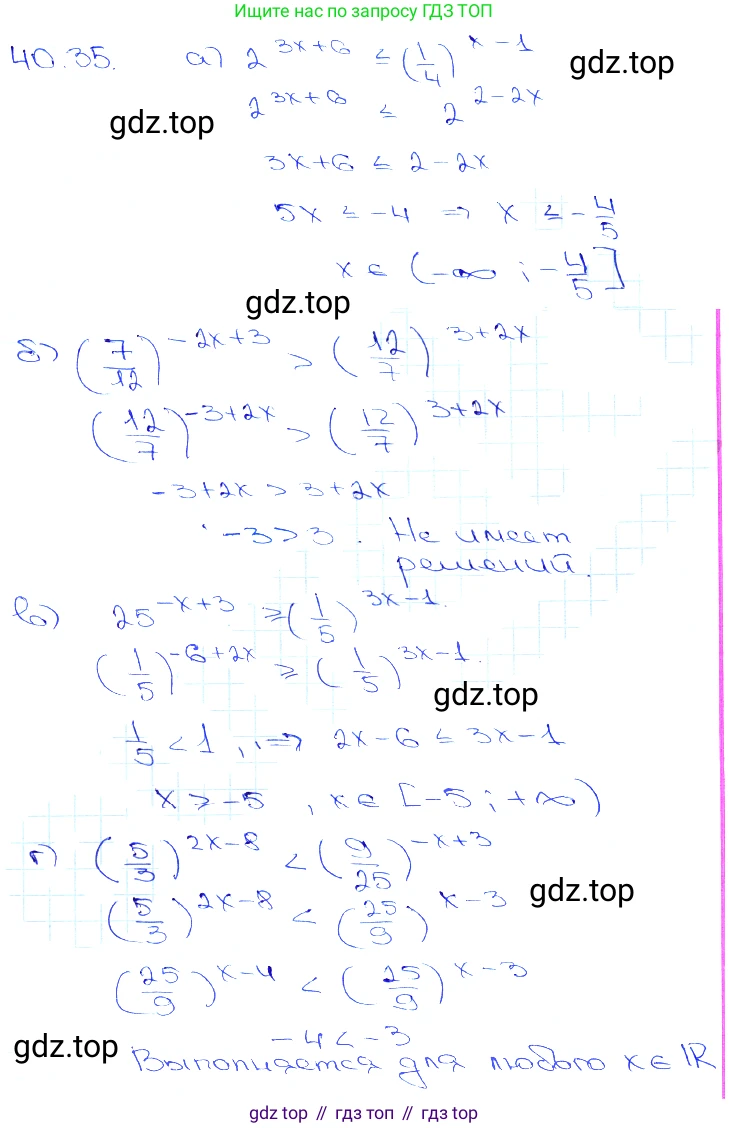 Ищите нас по запросу ГДЗ ТОП
40.35. а) 2^(3x+6) ≤ (1/4)^(x-1)
gdz.top
2^(3x+6) ≤ 2^(2-2x)
gdz.top
3x+6 ≤ 2-2x
5x ≤ -4 ⇒ x ≤ -4/5
x ∈ (-∞; -4/5]
gdz.top
б) (7/12)^(-2x+3) > (12/7)^(3+2x)
(12/7)^(-3+2x) > (12/7)^(3+2x)
-3+2x > 3+2x
-3>3. Не имеет
решений.
в) 25^(-x+3) ≥ (1/5)^(3x-1)
(1/5)^(-6+2x) ≥ (1/5)^(3x-1)
gdz.top
1/5 < 1, ⇒ 2x-6 ≤ 3x-1
x ≥ -5, x ∈ [-5; +∞)
г) (5/3)^(2x-8) < (9/25)^(-x+3)
(5/3)^(2x-8) < (25/9)^(x-3)
gdz.top
(25/9)^(x-4) < (25/9)^(x-3)
-4 < -3
gdz.top
Выполняется для любого x ∈ ℝ
gdz top // гдз топ // gdz.top